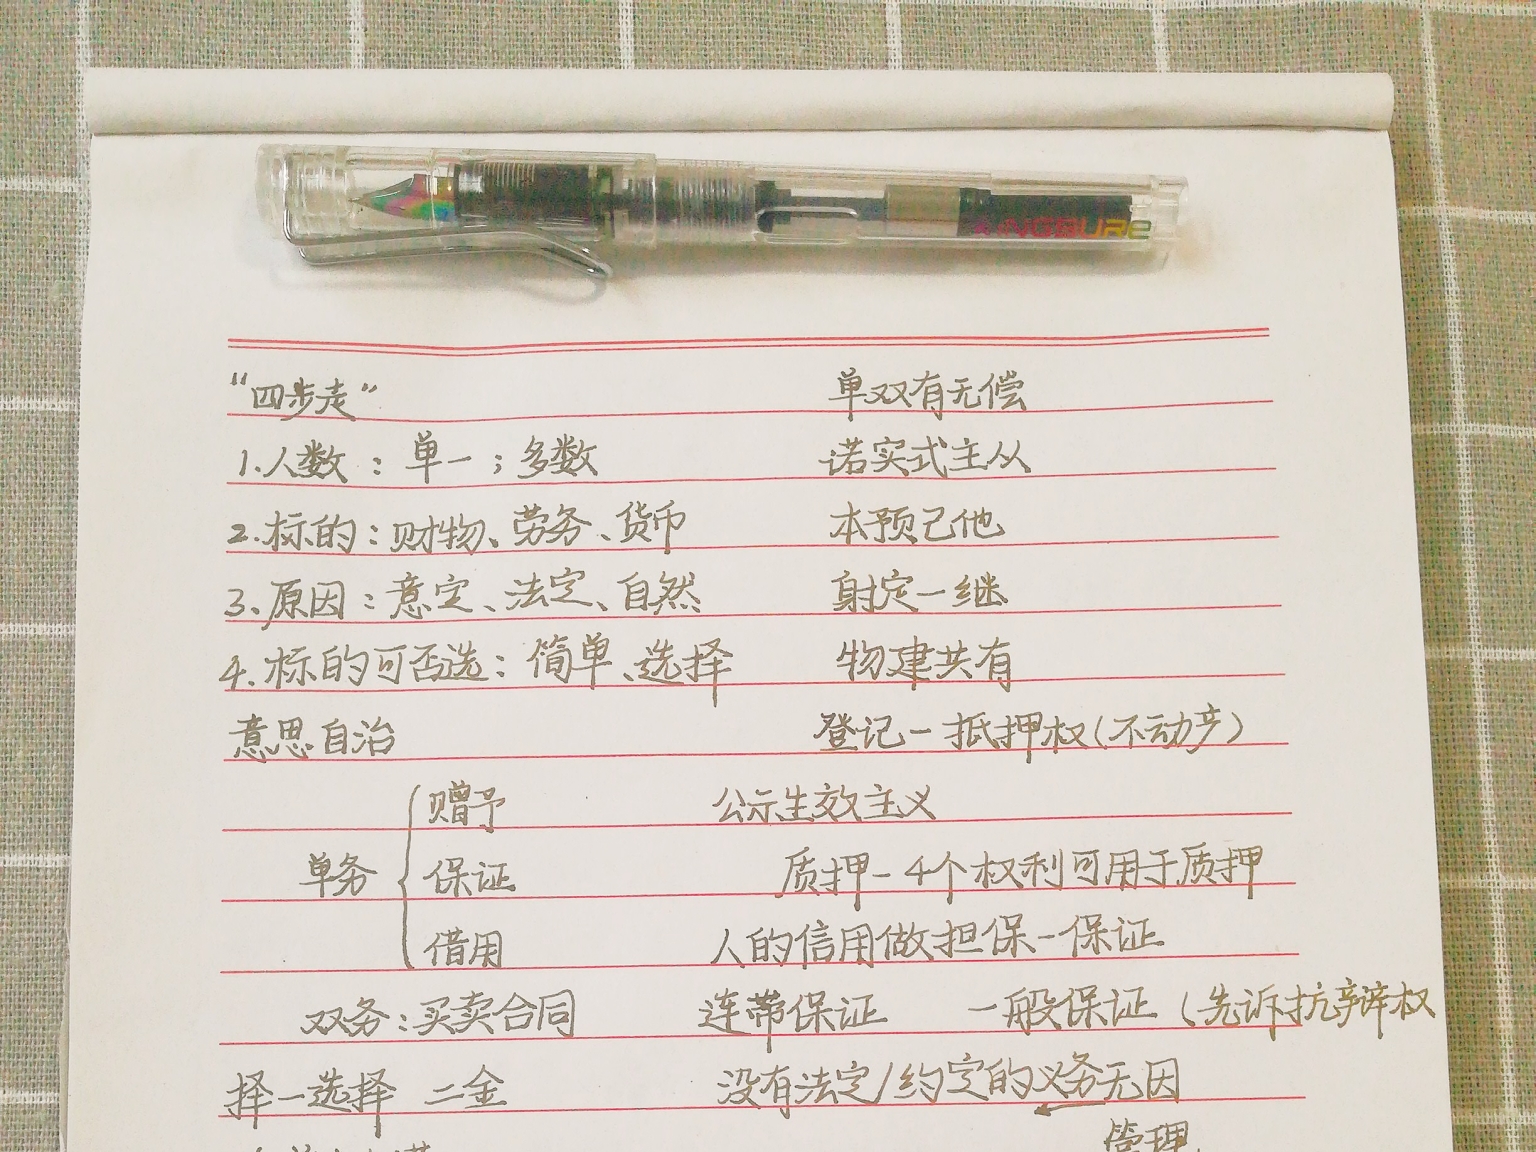 "四步走" 单双有无偿
1.人数：单一；多数 诺实式主从
2.标的：财物、劳务、货币 本预己他
3.原因：意定、法定、自然 射定一继
4.标的可否选：简单、选择 物建共有
意思自治 登记一抵押权(不动产)
赠予 公示生效主义
单务 保证 质押-4个权利可用于质押
借用 人的信用做担保-保证
双务：买卖合同 连带保证 一般保证（先诉抗辩权
择一选择 二金 没有法定/约定的义务无因
管理